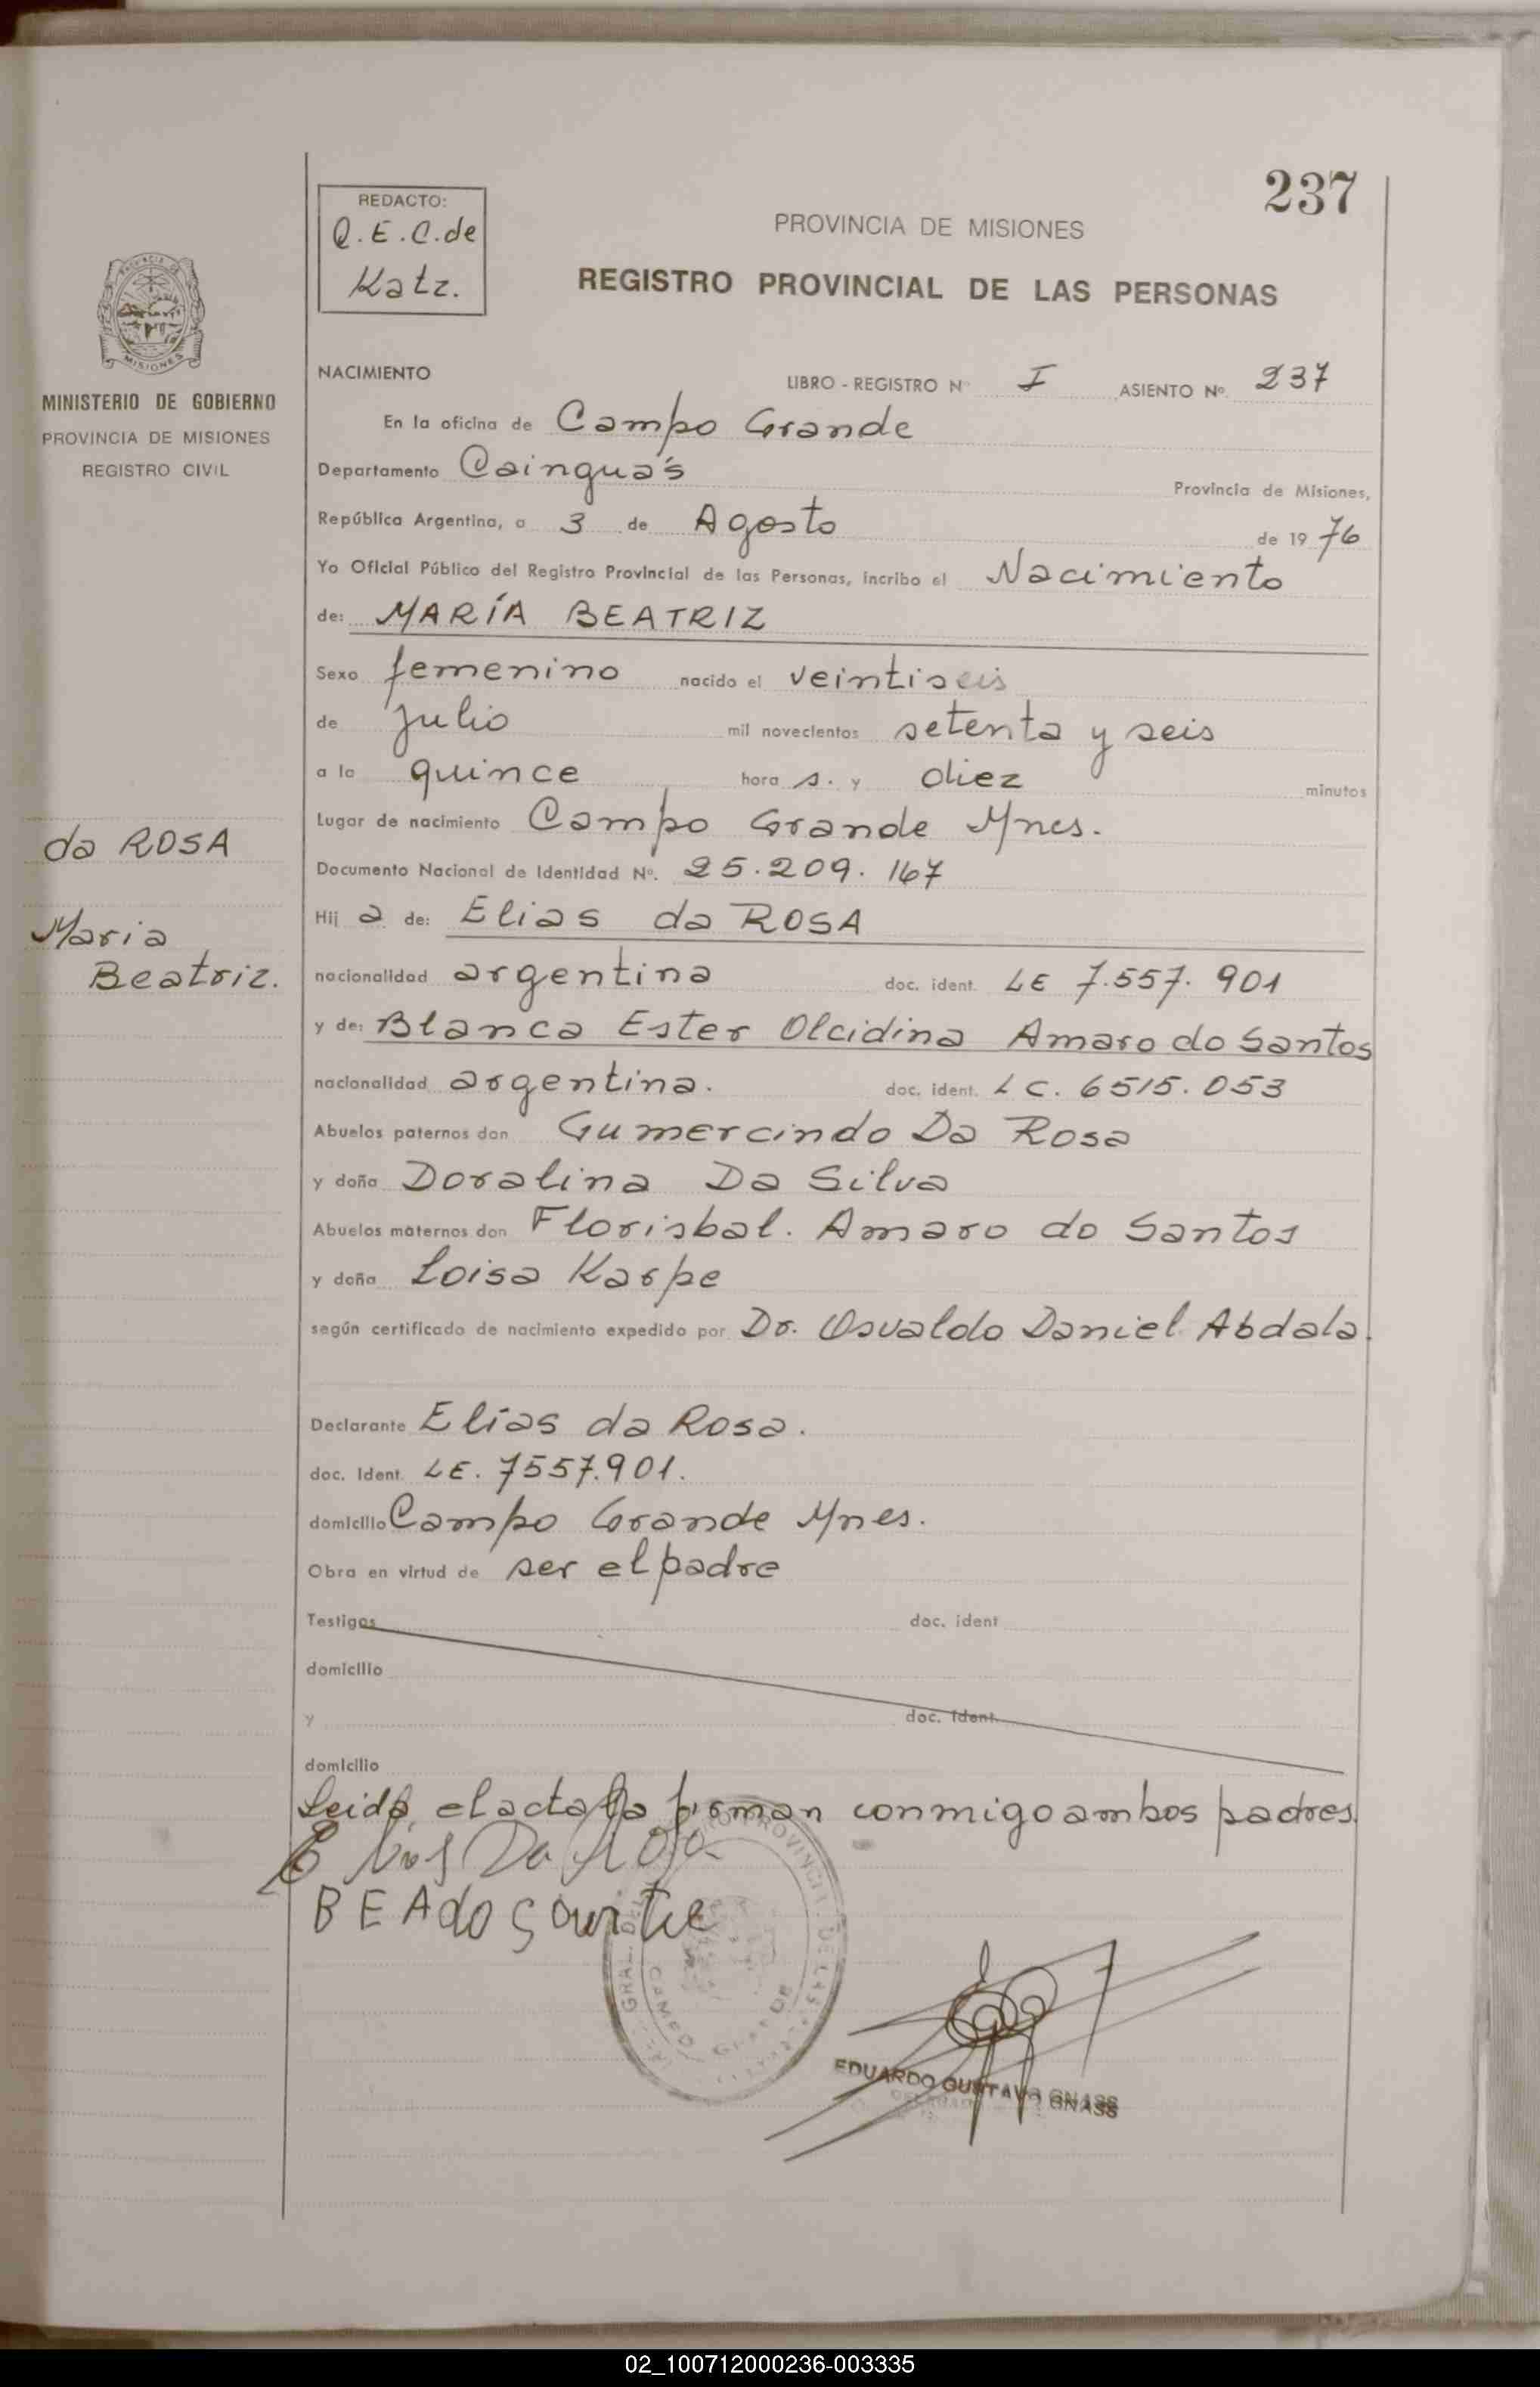 237
REDACTO:
Q.E.C. de
Katz.
PROVINCIA DE MISIONES
REGISTRO PROVINCIAL DE LAS PERSONAS
MISIONES
MINISTERIO DE GOBIERNO
PROVINCIA DE MISIONES
REGISTRO CIVIL
NACIMIENTO LIBRO - REGISTRO Nº I ASIENTO Nº 237
En la oficina de Campo Grande
Departamento Cainguás Provincia de Misiones,
República Argentina, a 3 de Agosto de 1976
Yo Oficial Público del Registro Provincial de las Personas, incribo el Nacimiento
de: MARÍA BEATRIZ
Sexo femenino nacido el veintiseis
de julio mil novecientos setenta y seis
a la quince hora s. y diez minutos
Lugar de nacimiento Campo Grande Mnes.
da ROSA
Documento Nacional de Identidad Nº. 25.209.167
Hij a de: Elias da ROSA
Maria
Beatriz.
nacionalidad argentina doc. ident. LE 7.557.901
y de: Blanca Ester Olcidina Amaro do Santos
nacionalidad argentina. doc. ident. LC. 6515.053
Abuelos paternos don Gumercindo Da Rosa
y doña Doralina Da Silva
Abuelos maternos don Florisbal. Amaro do Santos
y doña Loisa Karpe
según certificado de nacimiento expedido por Dr. Osvaldo Daniel Abdala.
Declarante Elías da Rosa.
doc. Ident. LE. 7557.901.
domicilio Campo Grande Mnes.
Obra en virtud de ser el padre
Testigos doc. ident
domicilio
y doc. ident.
domicilio
Leida el acta la firman conmigo ambos padres.
Elias Da Rosa
BEAdo
EDUARDO GUSTAVO GNASS
02_100712000236-003335